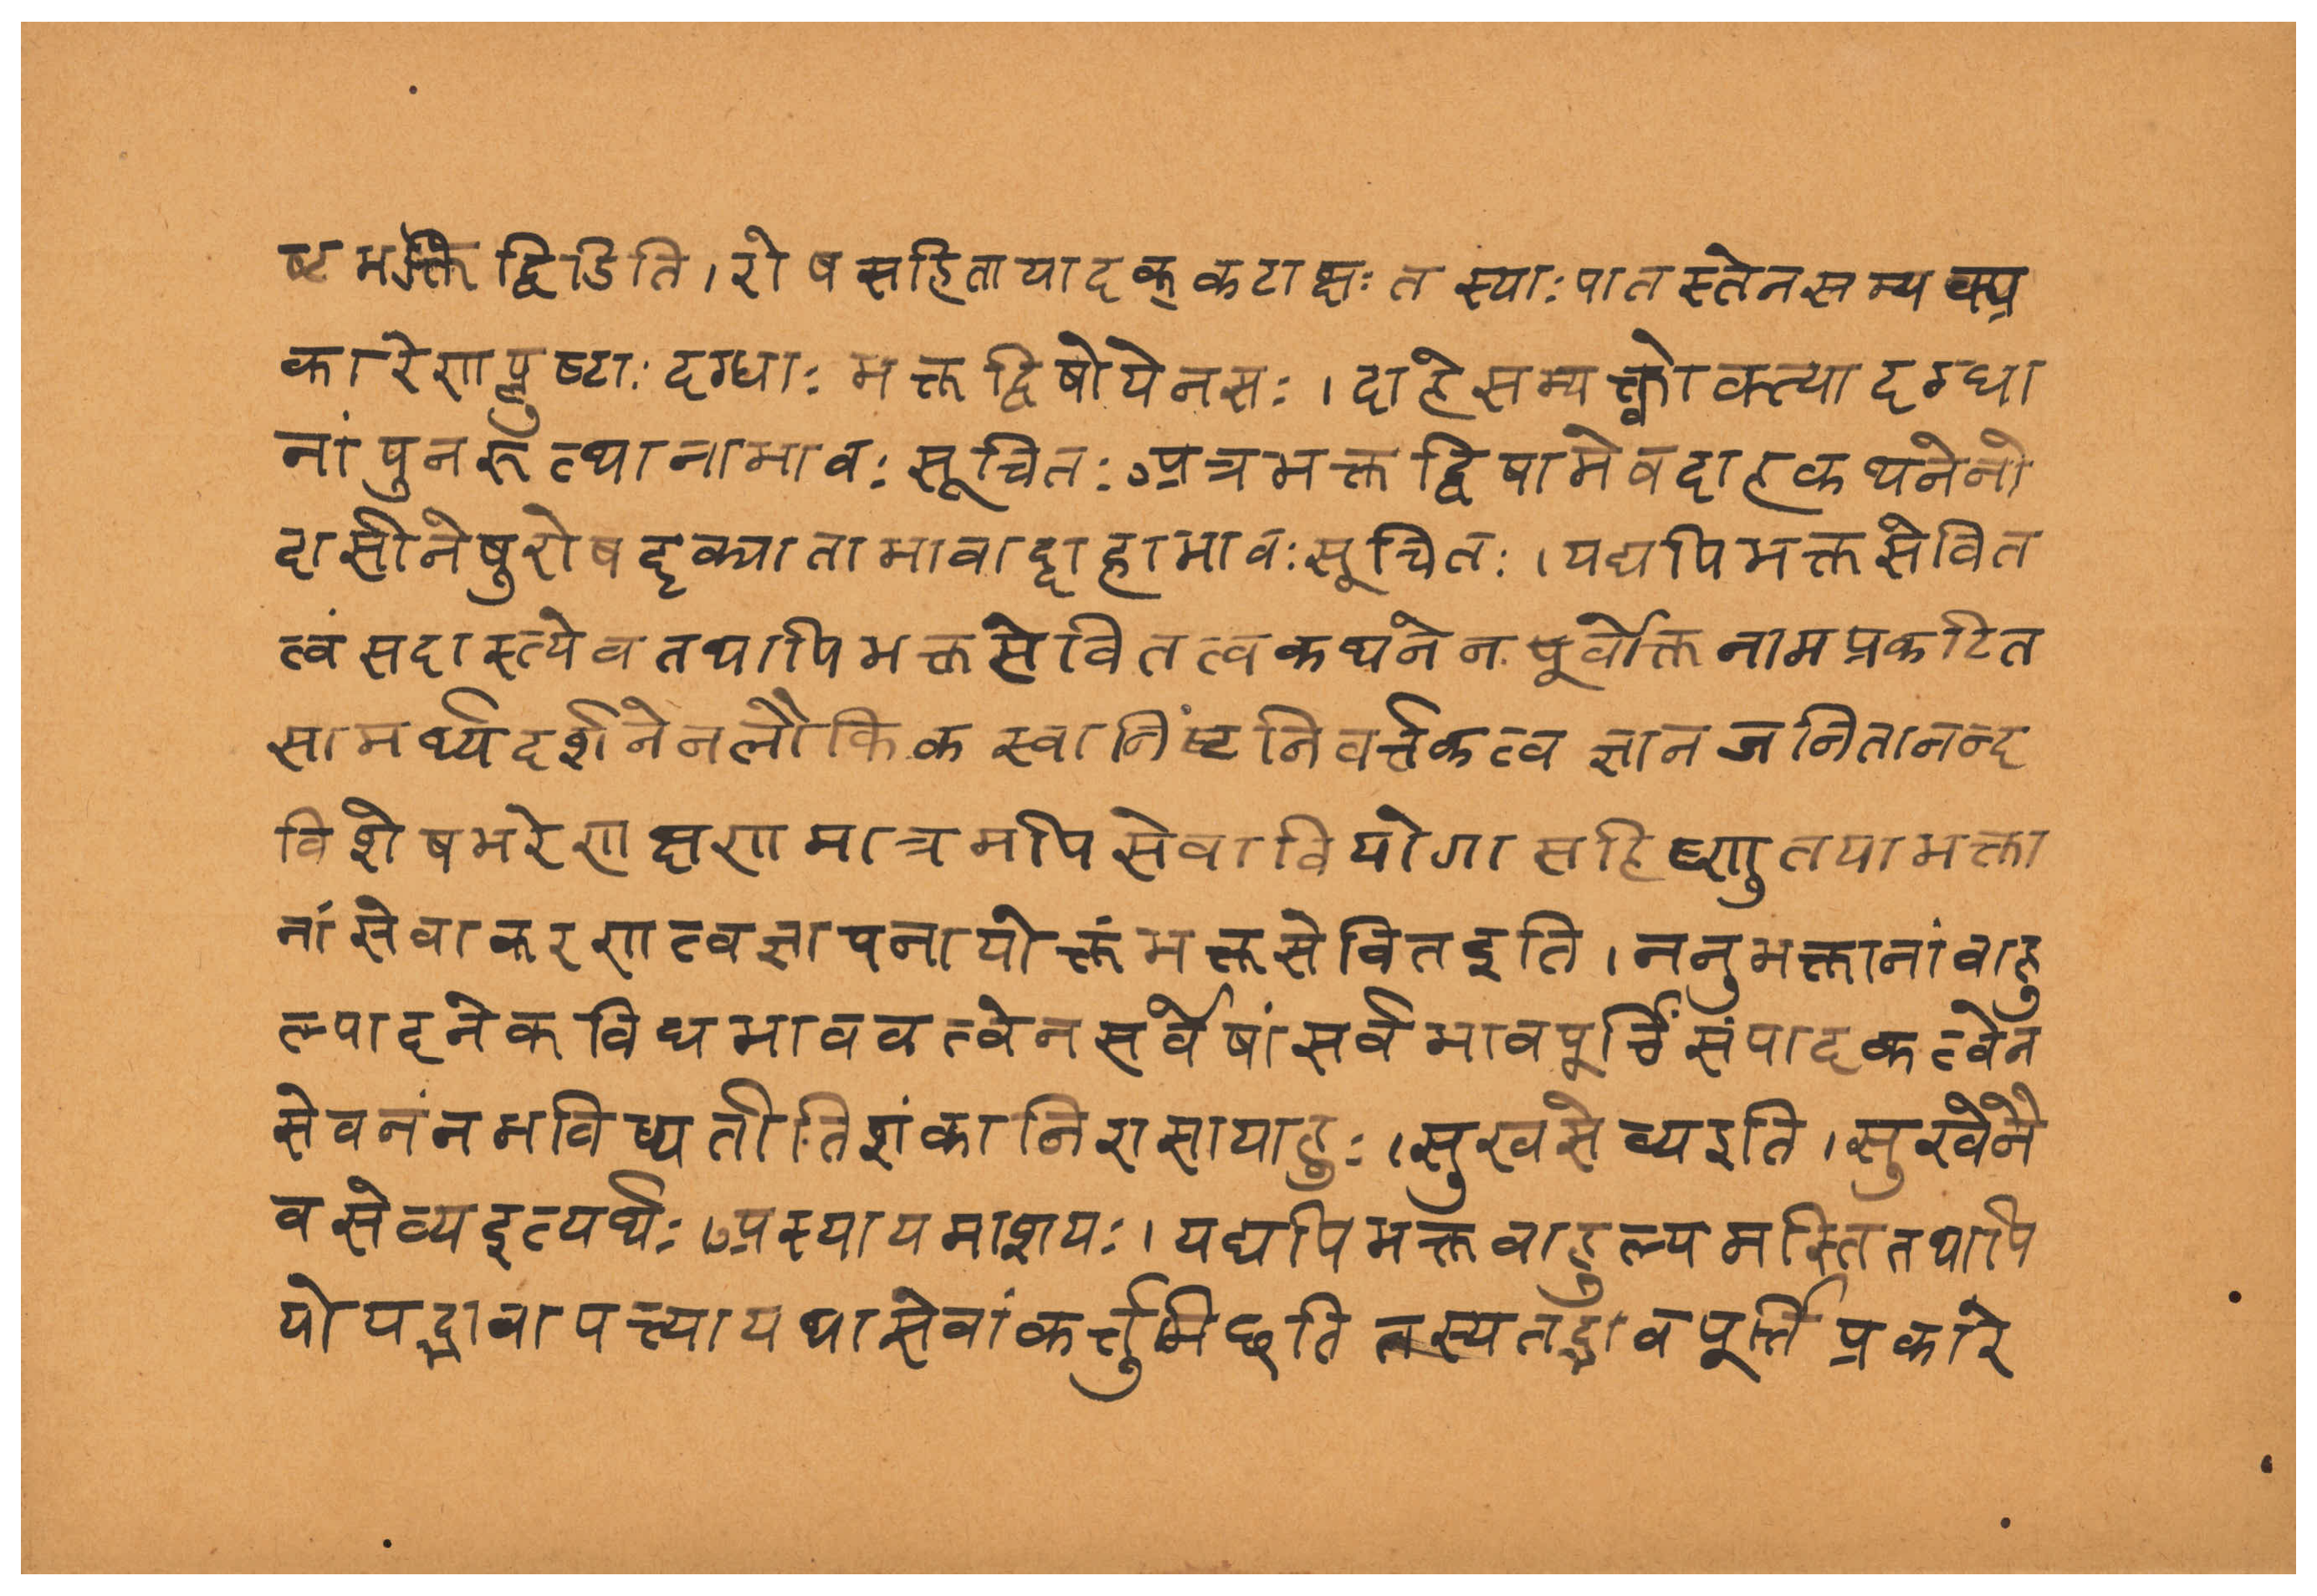 ष्टभक्तद्विडिति । रोषसहिता या दृक् कटाक्षः तस्याः पातस्तेन सम्यक्प्र
कारेण प्लुष्टाः दग्धाः भक्तद्विषो येन सः । दाहे सम्यक्त्वोक्त्या दग्धा
नां पुनरुत्थानाभावः सूचितः अत्र भक्तद्विषामेव दाहकथनेनो
दासीनेषु रोषदृक्पाताभावाद्दाहाभावः सूचितः । यद्यपि भक्तसेवित
त्वं सदास्त्येव तथापि भक्तसेवितत्वकथनेन पूर्वोक्तनामप्रकटित
सामर्थ्यदर्शनेन लौकिकस्वानिंष्टनिवर्त्तकत्वज्ञानजनितानन्द
विशेषभरेण क्षणमात्रमपि सेवावियोगासहिष्णुतया भक्ता
नां सेवाकरणत्वज्ञापनायोक्तं भक्तसेवित इति । ननु भक्तानां वाहु
ल्यादनेकविधभाववत्वेन सर्वेषां सर्वभावपूर्त्तिंसंपादकत्वेन
सेवनं न भविष्यतीति शंकानिरासायाहुः । सुखसेव्य इति । सुखेनै
व सेव्य इत्यर्थः । अस्यायमाशयः । यद्यपि भक्तवाहुल्यमस्ति तथापि
यो यद्भावापत्त्या यथा सेवां कर्त्तुमिछति तस्य तद्भावपूर्त्तिप्रकारे